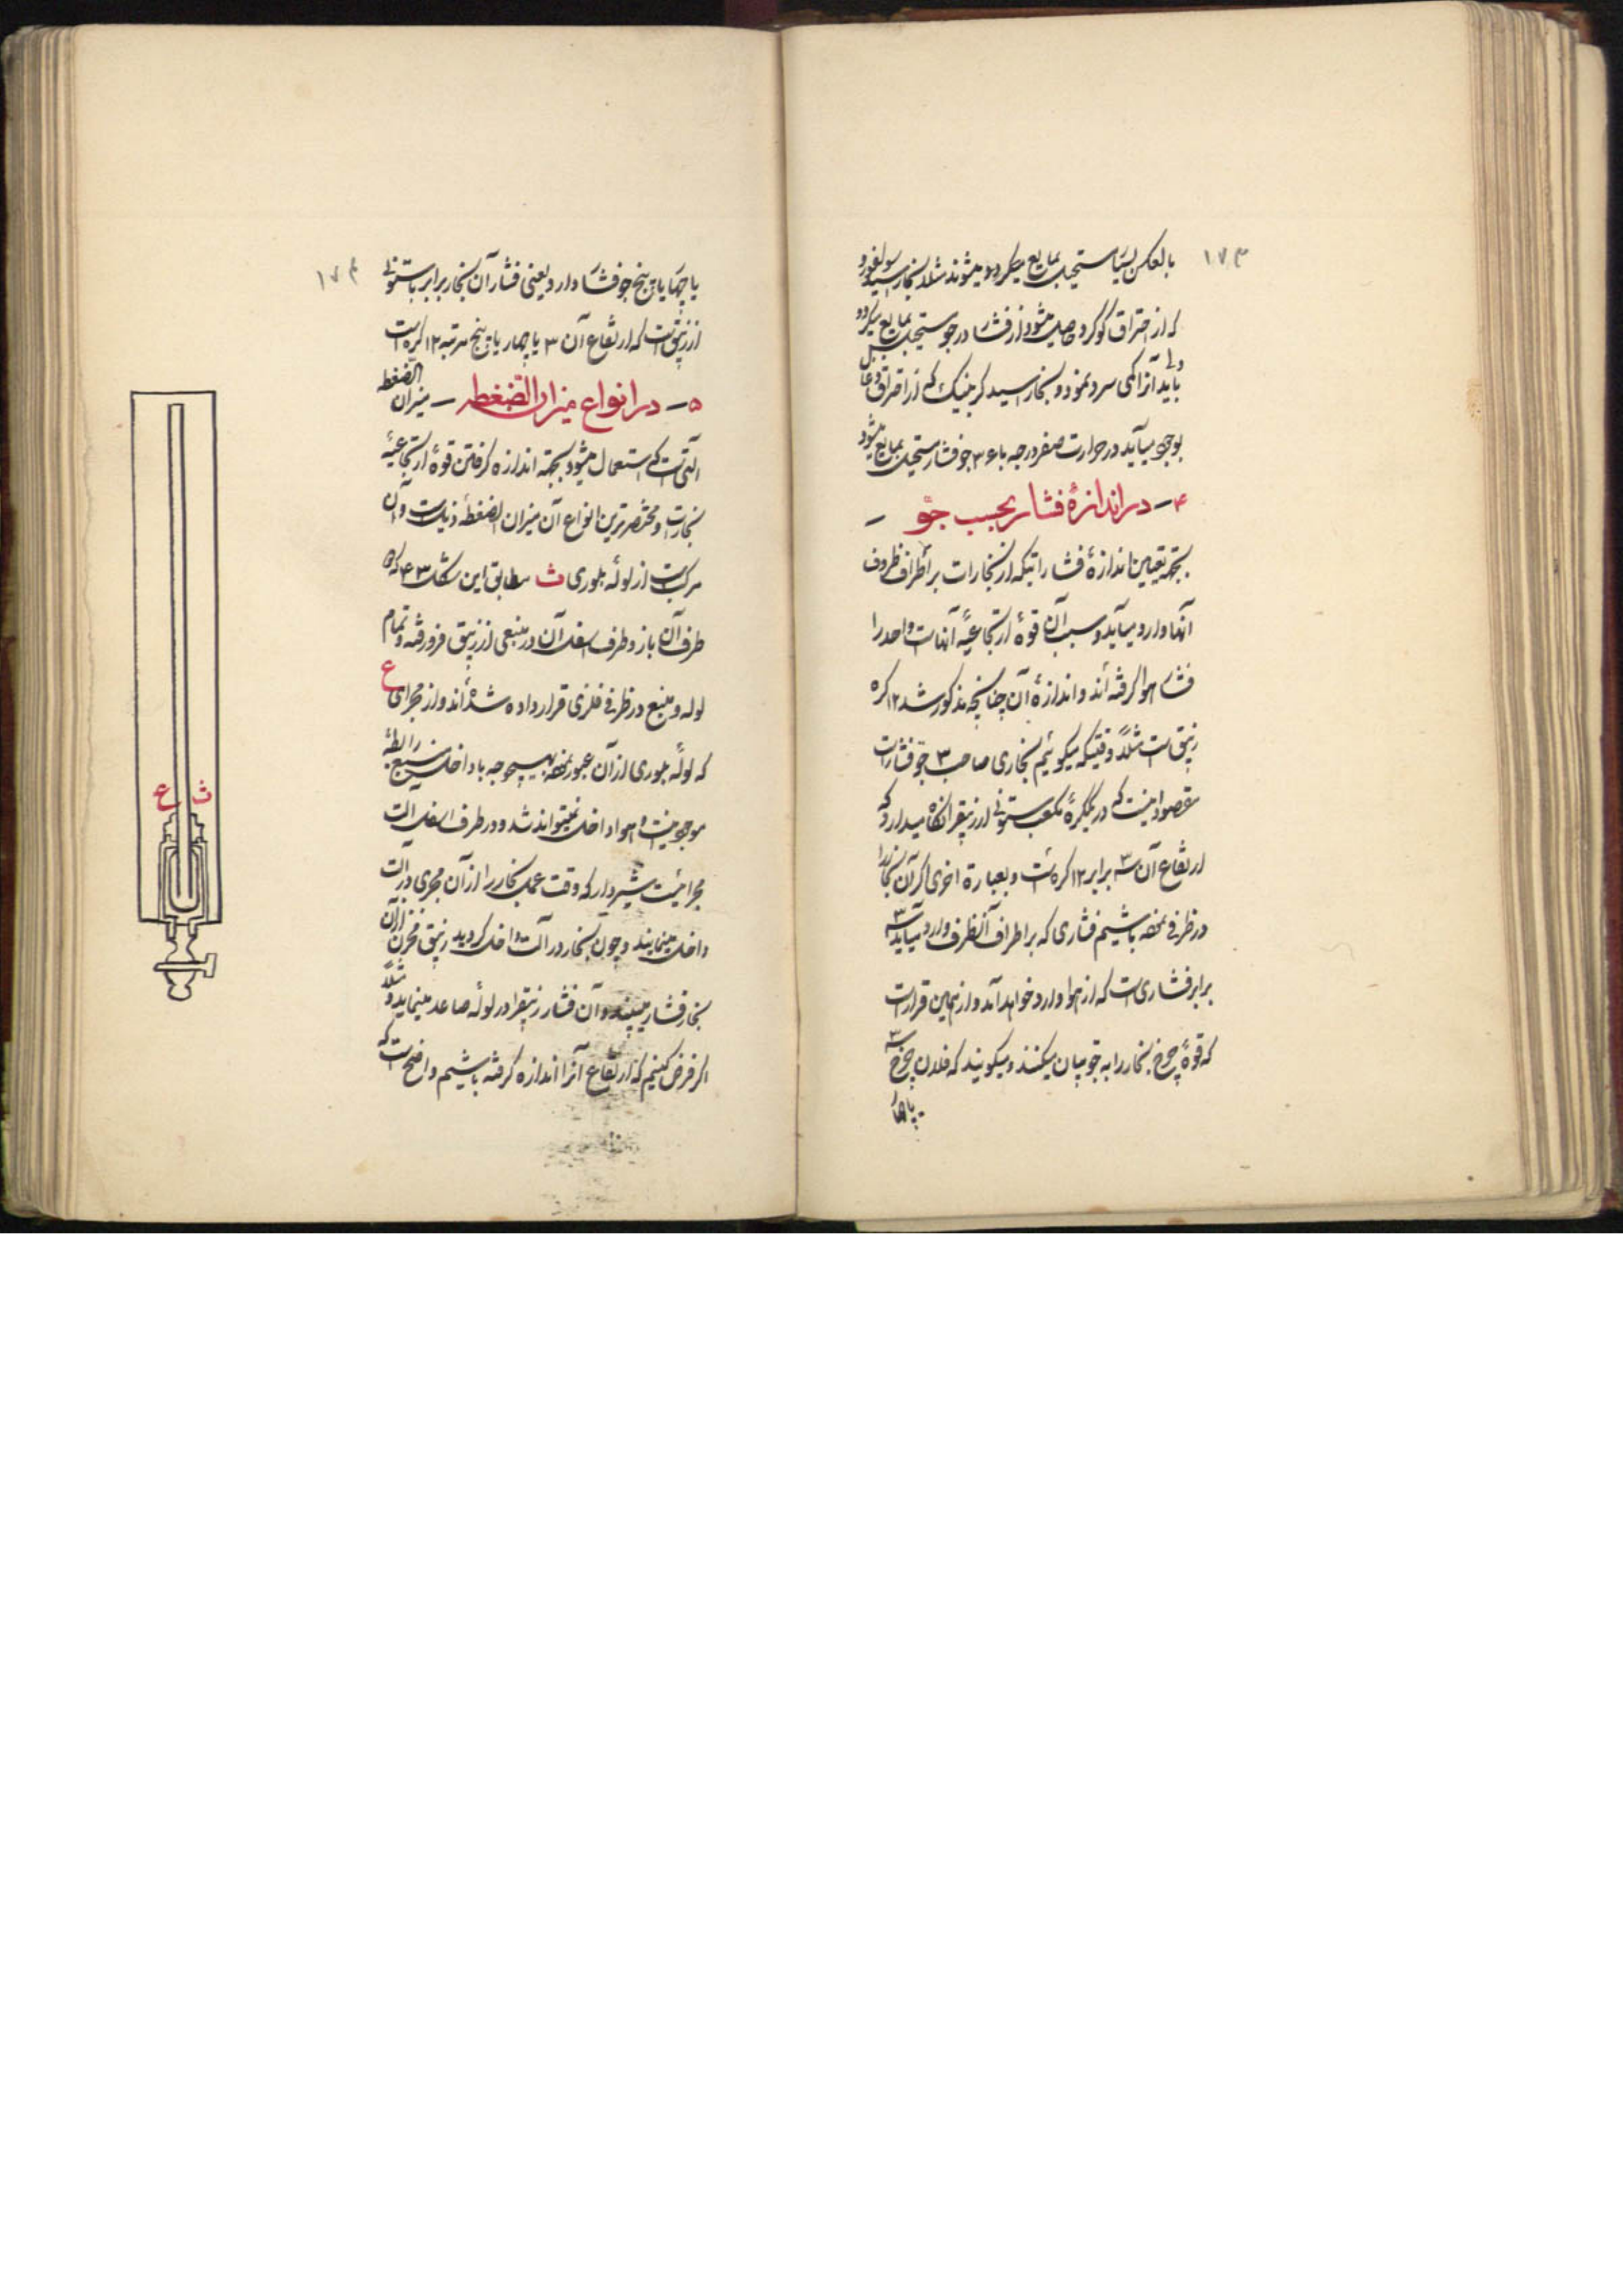 ۱۷۳
بالعکس بسیار مستحیل بمایع میگردد و میشوند مثلا بخار اسید سولفورو
که از احتراق گوگرد حاصل میشود از فشار در جو مستحیل بمایع میگردد
ولی باید آنرا کمی سرد نمود و بخار اسید کربنیک که از احتراق ذغال
بوجود میآید در حرارت صفر درجه با ۳۶ جو فشار مستحیل بمایع میشود
۴ – در اندازهٔ فشار بحسب جو –
بجهة تعیین اندازهٔ فشار اتیکه از بخارات بر اطراف ظروف
آنها وارد میآید و سبب آن قوهٔ ارتجاعیهٔ آنهاست واحد را
فشار هوا گرفته‌اند و اندازهٔ آن چنانچه مذکور شد ۱۲ گره
زیبق است مثلاً وقتیکه میگوئیم بخاری صاحب ۳ جو فشار است
مقصود اینست که در یکگرهٔ مکعب ستونی از زیبق را نگاه میدارد که
ارتفاع آن سه برابر ۱۲ گره است و بعبارة اخری اگر آن بخار را
در ظرفی بخفه باشیم فشاری که بر اطراف آنظرف وارد میآید سه
برابر فشاری است که از هوا وارد خواهد آمد و از همین قرار است
که قوهٔ چرخ بخار را به جو بیان میکنند و میگویند که فلان چرخ سه
یا چهار
۱۷۴
یا چهار یا پنج جو فشار دارد یعنی فشار آن بخار برابر با ستونی
از زیبق است که ارتفاع آن ۳ یا چهار یا پنج مرتبه ۱۲ گره است
۵ – در انواع میزان الضغطه – میزان الضغطه
آلتی است که استعمال میشود بجهة اندازه گرفتن قوهٔ ارتجاعیهٔ
بخارات و مختصرترین انواع آن میزان الضغطهٔ ذیل است و آن
مرکب است از لولهٔ بلوری ث مطابق این شکل ۴۳ که دو
طرف آن باز و طرف اسفل آن در منبعی از زیبق فرو رفته و تمام
لوله و منبع در ظرفی فلزی قرار داده شده‌اند و از مجرای ع
که لولهٔ بلوری از آن عبور نموده بهیچوجه با داخل منبع رابطهٔ
موجود نیست و هوا داخل نمیتواند شد و در طرف اسفل آلت
مجرائیست شیردار که وقت عمل بخار را از آن مجری در آلت
داخل مینمایند و چون بخار در آلت داخل گردید زیبق مخزن از آن
بخار فشار میبیند و آن فشار زیبق را در لوله صاعد مینماید و مثلاً
اگر فرض کنیم که ارتفاع آنرا اندازه گرفته باشیم واضح است که
ث
ع